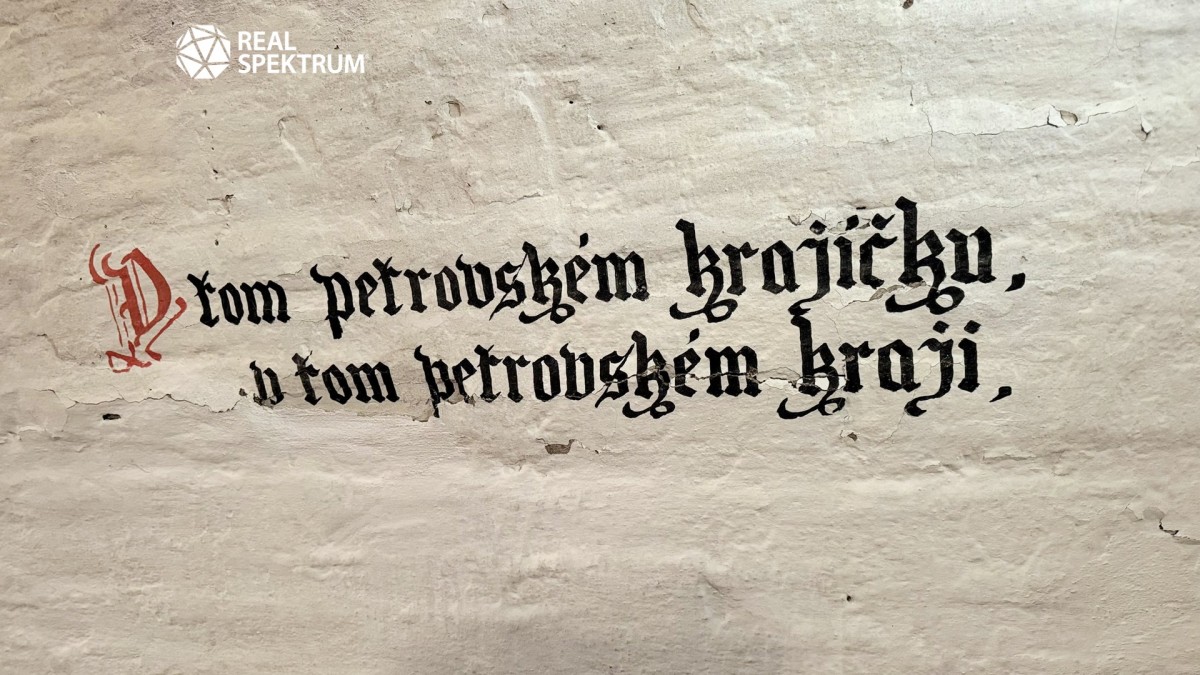 REAL
SPEKTRUM
V tom petrovském krajíčku,
v tom petrovském kraji,